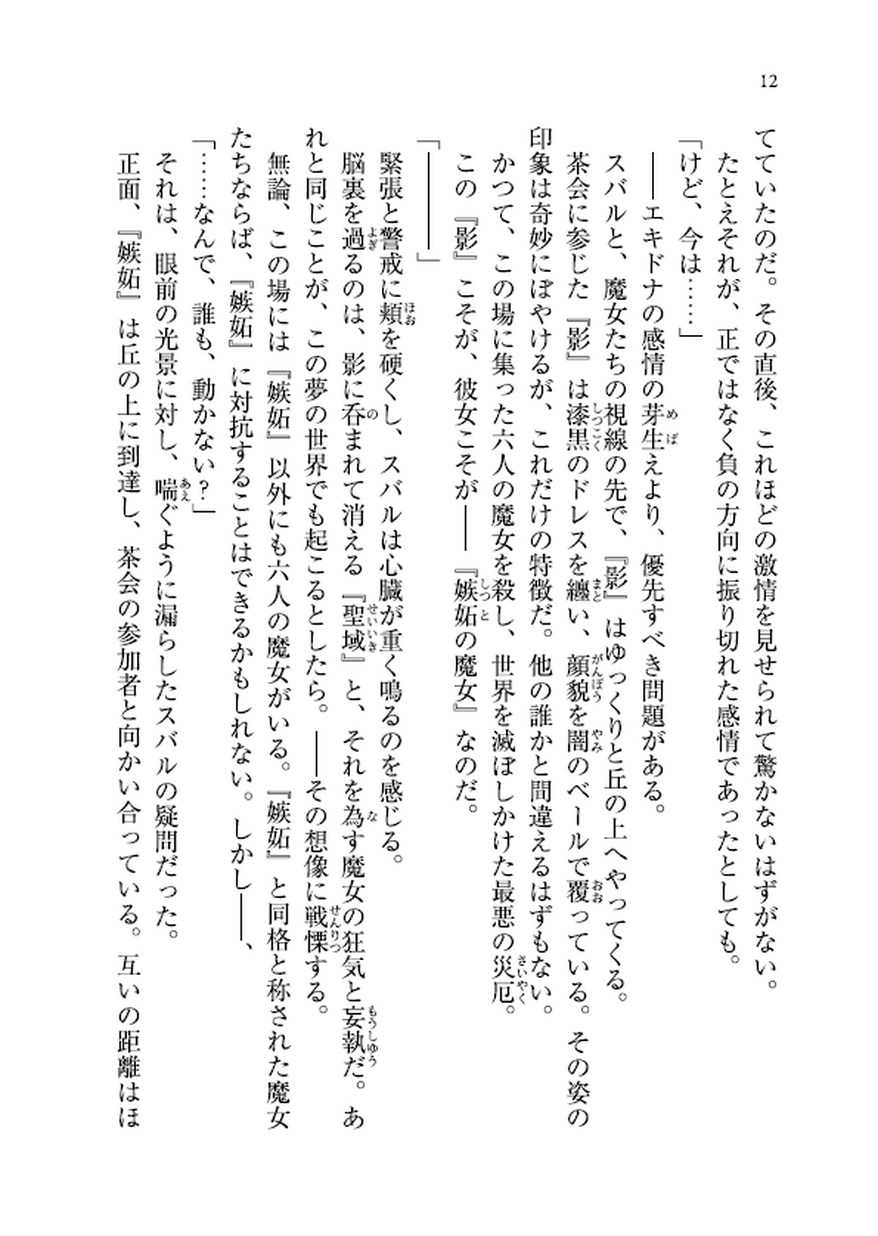 12
てていたのだ。その直後、これほどの激情を見せられて驚かないはずがない。
たとえそれが、正ではなく負の方向に振り切れた感情であったとしても。
「けど、今は……」
――エキドナの感情の芽生えより、優先すべき問題がある。
スバルと、魔女たちの視線の先で、『影』はゆっくりと丘の上へやってくる。
茶会に参じた『影』は漆黒のドレスを纏い、顔貌を闇のベールで覆っている。その姿の
印象は奇妙にぼやけるが、これだけの特徴だ。他の誰かと間違えるはずもない。
かつて、この場に集った六人の魔女を殺し、世界を滅ぼしかけた最悪の災厄。
この『影』こそが、彼女こそが――『嫉妬の魔女』なのだ。
「――――」
緊張と警戒に頬を硬くし、スバルは心臓が重く鳴るのを感じる。
脳裏を過るのは、影に呑まれて消える『聖域』と、それを為す魔女の狂気と妄執だ。あ
れと同じことが、この夢の世界でも起こるとしたら。――その想像に戦慄する。
無論、この場には『嫉妬』以外にも六人の魔女がいる。『嫉妬』と同格と称された魔女
たちならば、『嫉妬』に対抗することはできるかもしれない。しかし――、
「……なんで、誰も、動かない?」
それは、眼前の光景に対し、喘ぐように漏らしたスバルの疑問だった。
正面、『嫉妬』は丘の上に到達し、茶会の参加者と向かい合っている。互いの距離はほ